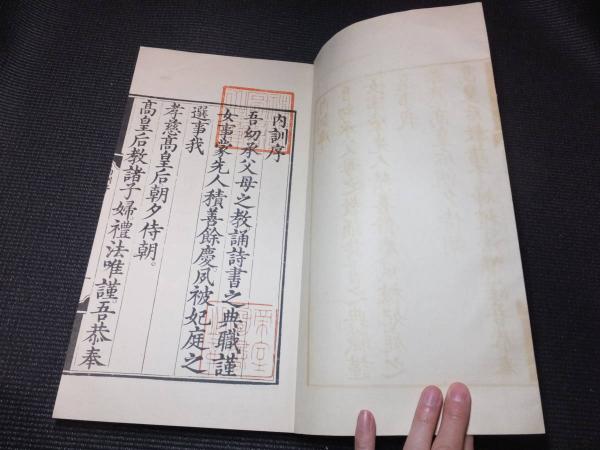 內訓序
吾幼承父母之教誦詩書之典職謹
女事蒙先人積善餘慶夙被妃庭之
選事我
孝慈高皇后朝夕侍朝。
高皇后教諸子婦禮法唯謹。吾恭奉